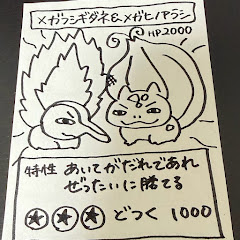 メガフシギダネ&メガヒノアラシ
HP2000
特性 あいてがだれであれ
ぜったいに勝てる
どつく 1000